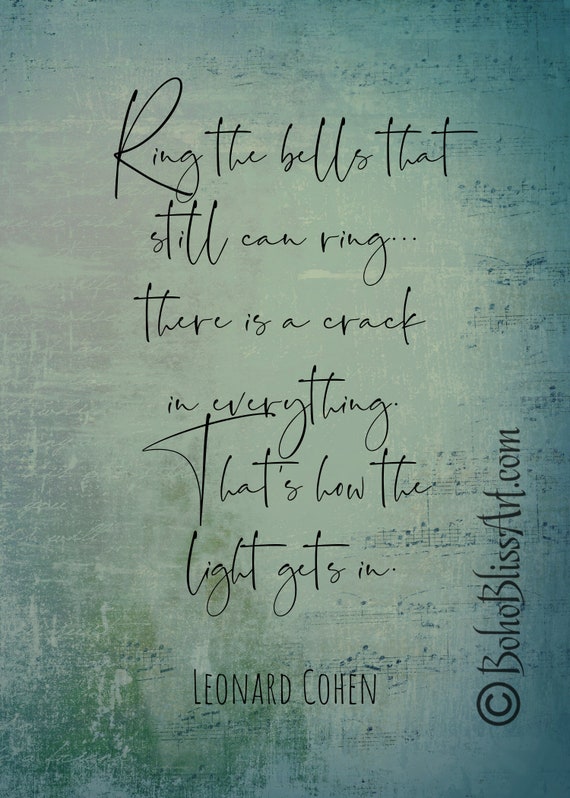 Ring the bells that
still can ring...
there is a crack
in everything.
That's how the
light gets in.
LEONARD COHEN
©BohoBlissArt.com